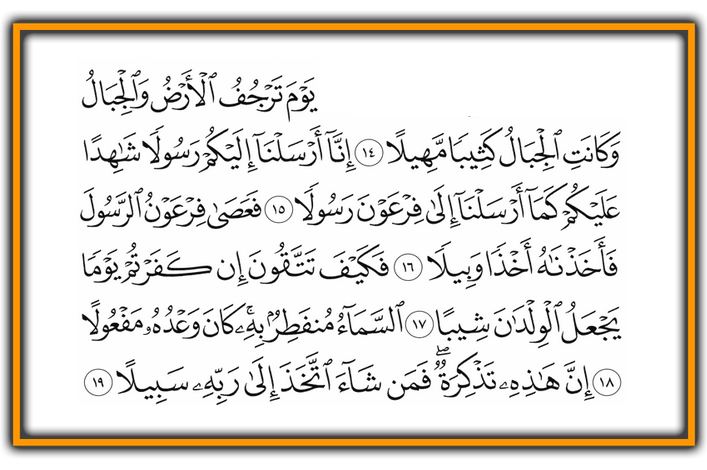 يَوْمَ تَرْجُفُ ٱلْأَرْضُ وَٱلْجِبَالُ
وَكَانَتِ ٱلْجِبَالُ كَثِيبًا مَّهِيلًا ١٤ إِنَّآ أَرْسَلْنَآ إِلَيْكُمْ رَسُولًا شَٰهِدًا
عَلَيْكُمْ كَمَآ أَرْسَلْنَآ إِلَىٰ فِرْعَوْنَ رَسُولًا ١٥ فَعَصَىٰ فِرْعَوْنُ ٱلرَّسُولَ
فَأَخَذْنَٰهُ أَخْذًا وَبِيلًا ١٦ فَكَيْفَ تَتَّقُونَ إِن كَفَرْتُمْ يَوْمًا
يَجْعَلُ ٱلْوِلْدَٰنَ شِيبًا ١٧ ٱلسَّمَآءُ مُنفَطِرٌۢ بِهِۦۚ كَانَ وَعْدُهُۥ مَفْعُولًا
١٨ إِنَّ هَٰذِهِۦ تَذْكِرَةٌۖ فَمَن شَآءَ ٱتَّخَذَ إِلَىٰ رَبِّهِۦ سَبِيلًا ١٩